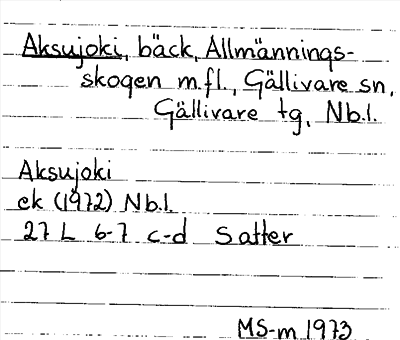 Aksujoki, bäck, Allmännings-
skogen m.fl., Gällivare sn,
Gällivare tg, Nb.l.
Aksujoki
ek (1972) Nb.l.
27 L 6-7 c-d Satter
MS-m 1973